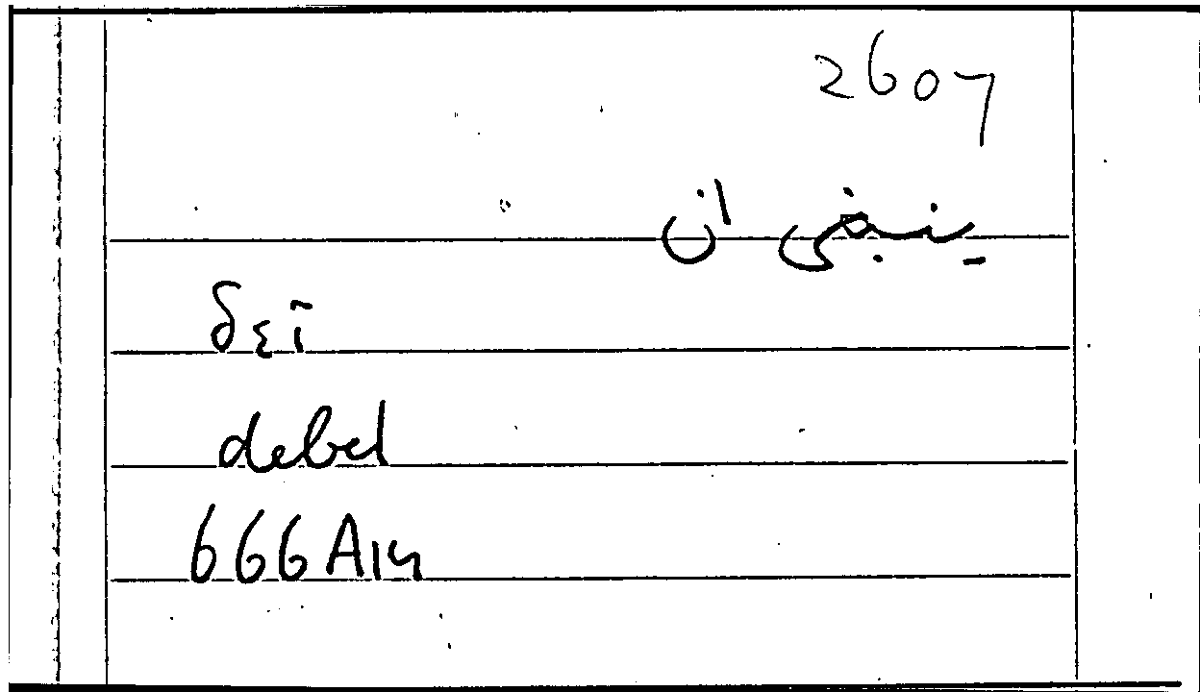 2607
ينبغى ان
δεῖ
debet
666A14